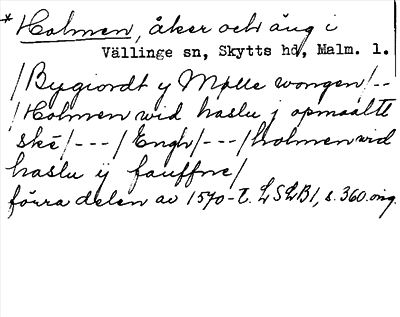 * Holmen, åker och äng i
Vällinge sn, Skytts hd, Malm. l.
/Bygiordt y Mølle wongen/--
/Holmen wid haslu j opmaaltt
ske/---/Engh/---/holmen wid
haslu ij fauffne/
förra delen av 1570-t. LSLB1, s. 360. orig.